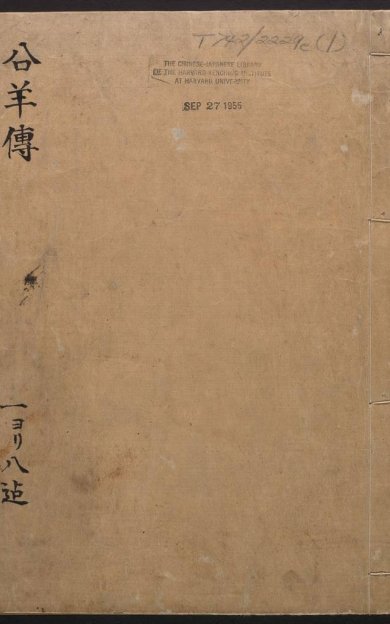 T 742/2229c (1)
THE CHINESE-JAPANESE LIBRARY
OF THE HARVARD-YENCHING INSTITUTE
AT HARVARD UNIVERSITY
SEP 27 1955
公羊傳
一ヨリ八迠